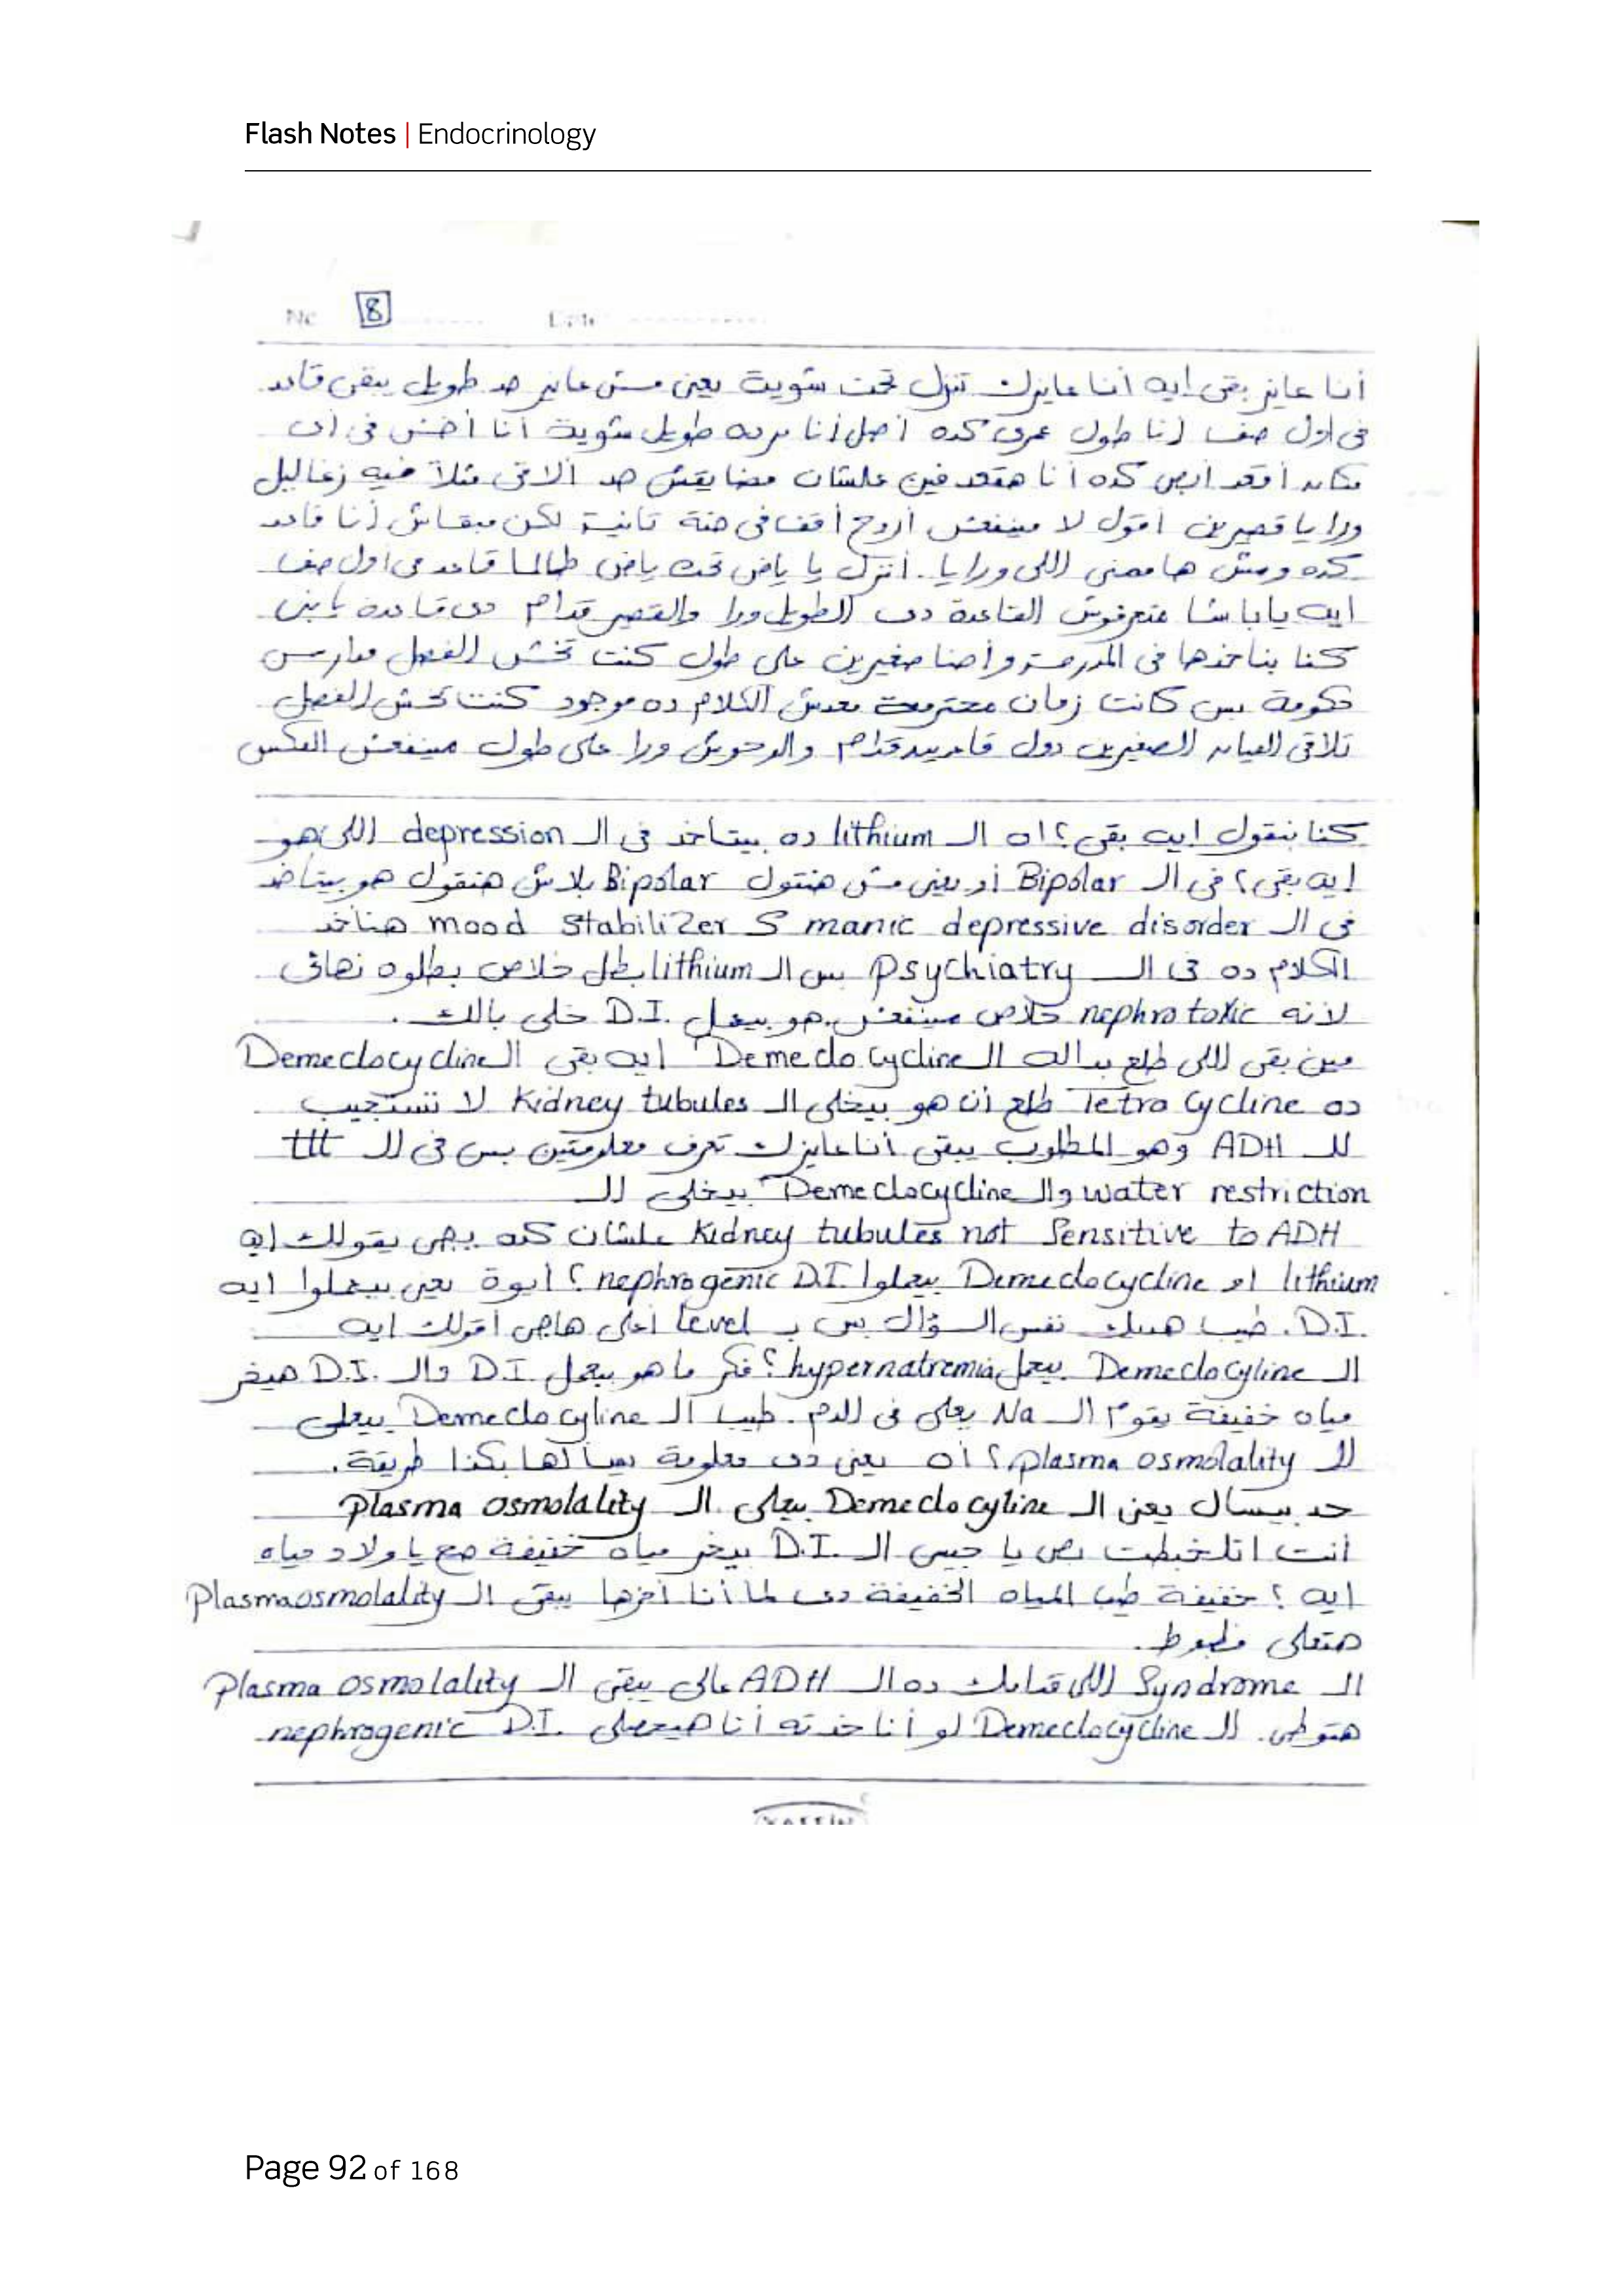 Flash Notes | Endocrinology
No 8 Date
أنا عايز بقى إيه أنا عايزك تنزل تحت شوية يعني مش عايز حد طويل يبقى قاعد
فى أول صف أنا طول عمرى كده أصل أنا برده طويل شوية أنا أخش فى أى
مكان أقعد أبص كده أنا هقعد فين علشان مضايقش حد ألاقى مثلاً فيه زغاليل
ورايا قصيرين أقول لا مينفعش أروح أقف فى حتة تانية لكن مبقاش أنا قاعد
كده ومش هاممنى اللى ورايا. أنزل يا ياض تحت ياض طالما قاعد فى أول صف
ايه يا باشا متعرفوش القاعدة دى الطويل ورا والقصير قدام دى قاعدة يابنى
كنا بناخدها فى المدرسة وأحنا صغيرين على طول كنت تخش الفصل مدارس
حكومة بس كانت زمان محترمة معدش الكلام ده موجود كنت تخش الفصل
تلاقى العيال الصغيرين دول قاعدين قدام والوحوش ورا على طول مينفعش العكس
كنا بنقول ايه بقى؟ اه ال lithium ده بيتاخد فى ال depression اللى هو
إيه بقى؟ فى ال Bipolar أو يعنى مش هنقول Bipolar بلاش هنقول هو بيتاخد
فى ال manic depressive disorder S mood stabilizer هناخد
الكلام ده فى ال Psychiatry بس ال lithium بطل خلاص بطلوه نهائى
لأنه nephrotoxic خلاص مينفعش. هو بيعمل D.I. خلى بالك.
مين بقى اللى طلع بداله ال Demeclocycline ايه بقى ال Demeclocycline
ده Tetracycline طلع أن هو بيخلى ال Kidney tubules لا تستجيب
لل ADH وهو المطلوب يبقى أنا عايزك تعرف معلومتين بس فى ال ttt
water restriction وال Demeclocycline بيخلى ال
Kidney tubules not Sensitive to ADH علشان كده يجى يقولك ايه
lithium او Demeclocycline بيعملوا nephrogenic D.I.؟ أيوة يعنى بيعملوا ايه
D.I. طيب هسألك نفس السؤال بس بـ level أعلى هاجى أقولك ايه
ال Demeclocyline بيعمل hypernatremia؟ فكر ما هو بيعمل D.I وال D.I. هيخر
مياه خفيفة يقوم ال Na يعلى فى الدم. طيب ال Demeclocyline بيعلى
ال plasma osmolality؟ أه يعنى دى معلومة بيسألها بكذا طريقة.
حد بيسال يعنى ال Demeclocyline بيعلى ال plasma osmolality
أنت اتلخبطت بص يا حبيبى ال D.I. بيخر مياه خفيفة صح يا ولاد مياه
ايه؟ خفيفة طيب المياه الخفيفة دى لما أنا أخرها يبقى ال Plasma osmolality
هتعلى مظبوط.
ال Syndrome اللى قدامك ده ال ADH عالى يبقى ال Plasma osmolality
هتوطى. ال Demeclocycline لو أنا خدته أنا هيعملى nephrogenic D.I.
Page 92 of 168